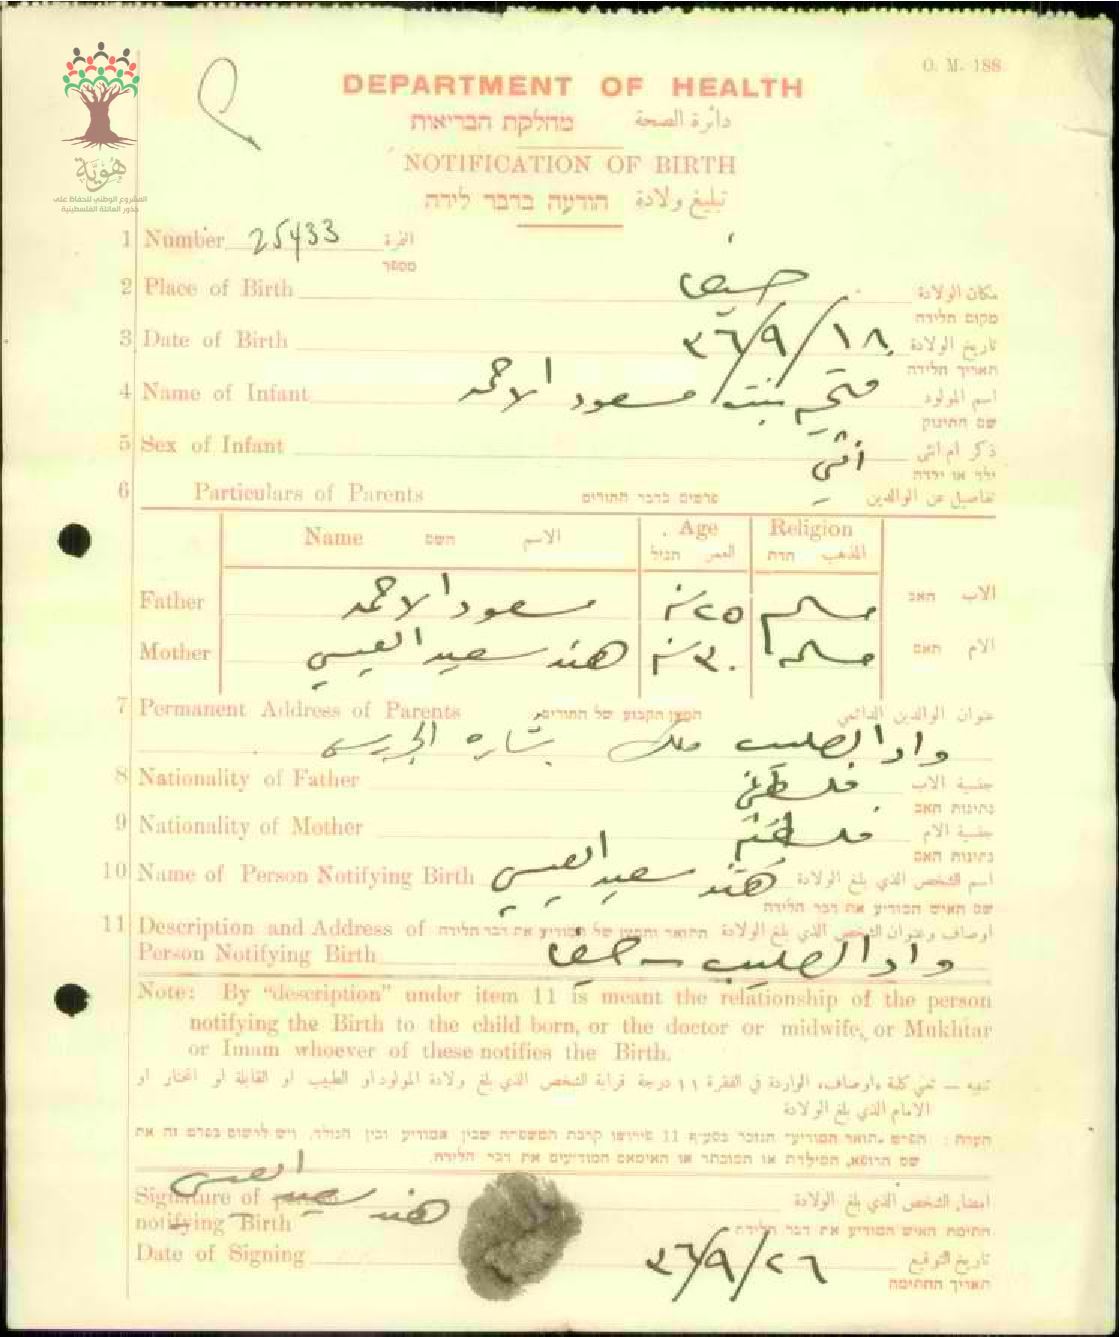 O. M. 188.
DEPARTMENT OF HEALTH
דائرة الصحة מחלקת הבריאות
NOTIFICATION OF BIRTH
تبليغ ولادة הודעה בדבר לידה
هُوِيَّة
المشروع الوطني للحفاظ على
جذور العائلة الفلسطينية
1 Number 25433 النمرة
מספר
2 Place of Birth حيفا مكان الولادة
מקום הלידה
3 Date of Birth ١٨/٩/٣٦ تاريخ الولادة
תאריך הלידה
4 Name of Infant فتحيه بنت مسعود الاحمد اسم المولود
שם התינוק
5 Sex of Infant انثى ذكر ام انثى
ילד או ילדה
6 Particulars of Parents פרטים בדבר ההורים تفاصيل عن الوالدين
Name השם الاسم Age Religion
العمر הגיל المذهب הדת
Father مسعود الاحمد ٢٥ سنه مسلم الاب האב
Mother هند سعيد العيسى ٣٠ سنه مسلمه الام האם
7 Permanent Address of Parents המען הקבוע של ההורים عنوان الوالدين الدائمي
واد الصليب ملك بشاره
8 Nationality of Father فلسطيني جنسية الاب
נתינות האב
9 Nationality of Mother فلسطينيه جنسية الام
נתינות האם
10 Name of Person Notifying Birth هند سعيد العيسى اسم الشخص الذي بلغ الولادة
שם האיש המודיע את דבר הלידה
11 Description and Address of התואר והמען של המודיע את דבר הלידה اوصاف وعنوان الشخص الذي بلغ الولادة
Person Notifying Birth واد الصليب - حيفا
Note: By “description” under item 11 is meant the relationship of the person
notifying the Birth to the child born, or the doctor or midwife, or Mukhtar
or Imam whoever of these notifies the Birth.
تنبيه — تعني كلمة «اوصاف» الواردة في الفقرة ١١ درجة قرابة الشخص الذي بلغ ولادة المولود او الطبيب او القابلة او المختار او
الامام الذي بلغ الولادة
הערה: הפרט „תואר המודיע” הנזכר בסעיף 11 פירושו קרבת המשפחה שבין המודיע ובין הנולד. ויש לרשום בפרט זה את
שם הרופא, המילדת או המוכתר או האימאם המודיעים את דבר הלידה.
Signature of person هند سعيد العيسى امضاء الشخص الذي بلغ الولادة
notifying Birth חתימת האיש המודיע את דבר הלידה
Date of Signing ٢٦/٩/٣٦ تاريخ التوقيع
תאריך החתימה